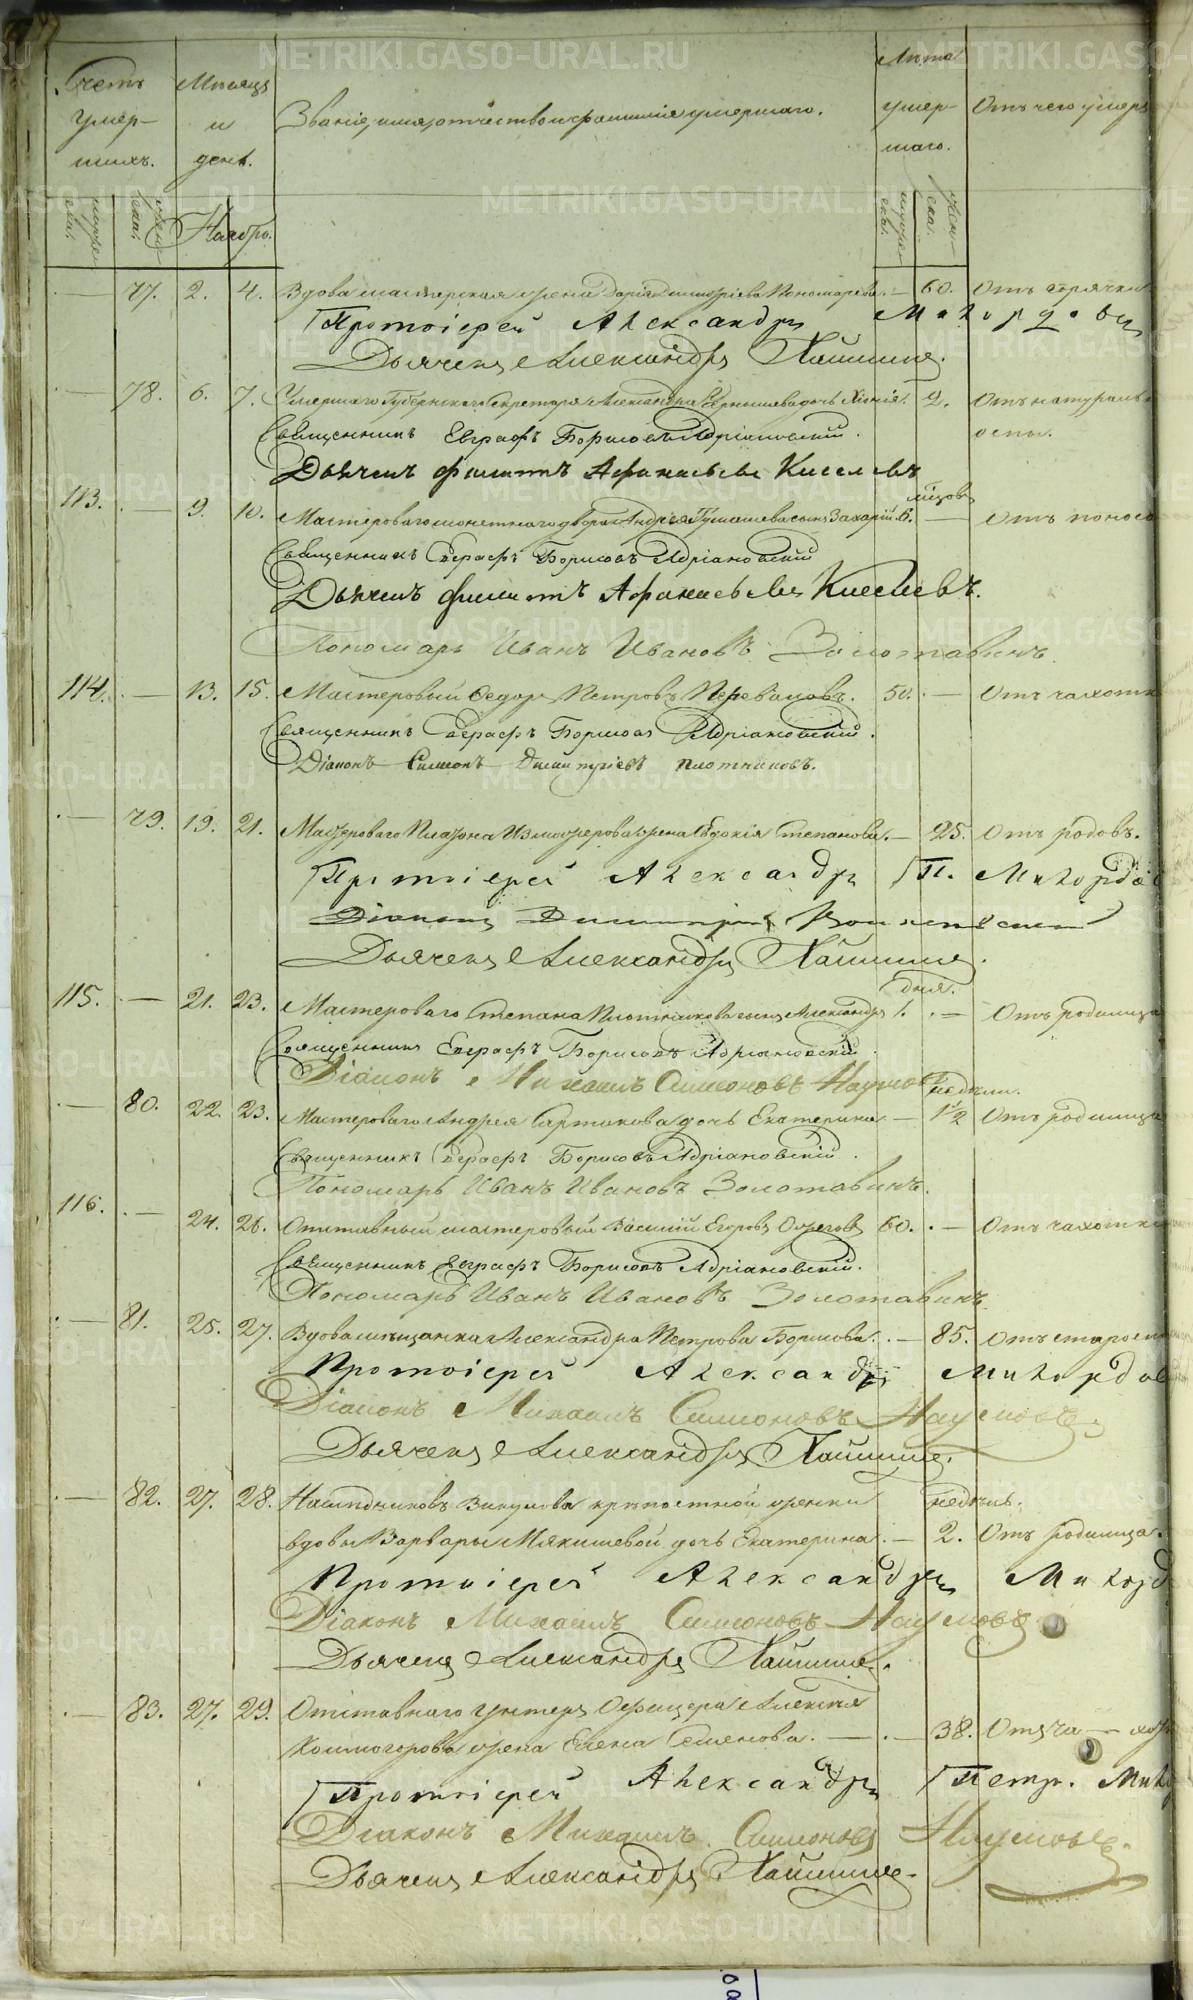 Счетъ умер- шихъ.
Мѣсяцъ и день.
Званіе, имя, отчество и фамилія умершаго.
Лѣта умер- шаго.
Отъ чего умеръ
Ноябрь.
— 77. 2. 4. Вдова мастерская жена Дарія Димитріева Пономарева. — 60. Отъ горячки
Протоіерей Александръ
Дьячекъ Александръ
— 78. 6. 7. Умершаго Губернскаго Секретаря Александра Чернышева дочь Хіонія. 2. Отъ натуральн
оспы.
Священникъ Евграфъ Борисовъ Адріановскій.
Дьячекъ Филиппъ Афанасьевъ Киселевъ
мѣсяцов
113. — 9. 10. Мастероваго монетнаго двора Андрея сынъ Захарій. 6. — Отъ поноса
Священникъ Евграфъ Борисовъ Адріановскій
Дьячекъ Филиппъ Афанасьевъ Киселевъ.
Пономарь Иванъ Ивановъ Золотавинъ.
114. — 13. 15. Мастеровый Федоръ Петровъ Переваловъ. 50. — Отъ чахотки
Священникъ Евграфъ Борисовъ Адріановскій.
Діаконъ Симеонъ Димитріевъ Плотниковъ.
— 79. 19. 21. Мастероваго Платона Изможерова жена Евдокія Степанова. — 25. Отъ родовъ.
Протоіерей Александръ П.
Діаконъ Димитрій
Дьячекъ Александръ
дня.
115. — 21. 23. Мастероваго Степана Плотникова сынъ Александръ 1. — Отъ родимца
Священникъ Евграфъ Борисовъ Адріановскій
Діаконъ Михаилъ Симоновъ Наумовъ
недѣли.
— 80. 22. 23. Мастероваго Андрея дочь Екатерина — 1½ Отъ родимца
Священникъ Евграфъ Борисовъ Адріановскій.
Пономарь Иванъ Ивановъ Золотавинъ.
116. — 24. 26. Отставный мастеровый Василій Егоровъ Ожеговъ 60. — Отъ чахотки
Священникъ Евграфъ Борисовъ Адріановскій.
Пономарь Иванъ Ивановъ Золотавинъ.
— 81. 25. 27. Вдова мѣщанка Александра Петрова Борисова. — 85. Отъ старости
Протоіерей Александръ
Діаконъ Михаилъ Симоновъ Наумовъ.
Дьячекъ Александръ
— 82. 27. 28. Наслѣдниковъ Викулова крѣпостной женки недѣль.
вдовы Варвары Мякишевой дочь Екатерина. — 2. Отъ родимца.
Протоіерей Александръ
Діаконъ Михаилъ Симоновъ Наумовъ
Дьячекъ Александръ
— 83. 27. 29. Отставнаго Унтеръ Офицера Алексѣя
Колмогорова жена Елена Семенова. — 38. Отъ ча-хот
Протоіерей Александръ Петр.
Діаконъ Михаилъ Симоновъ Наумовъ.
Дьячекъ Александръ
METRIKI.GASO-URAL.RU